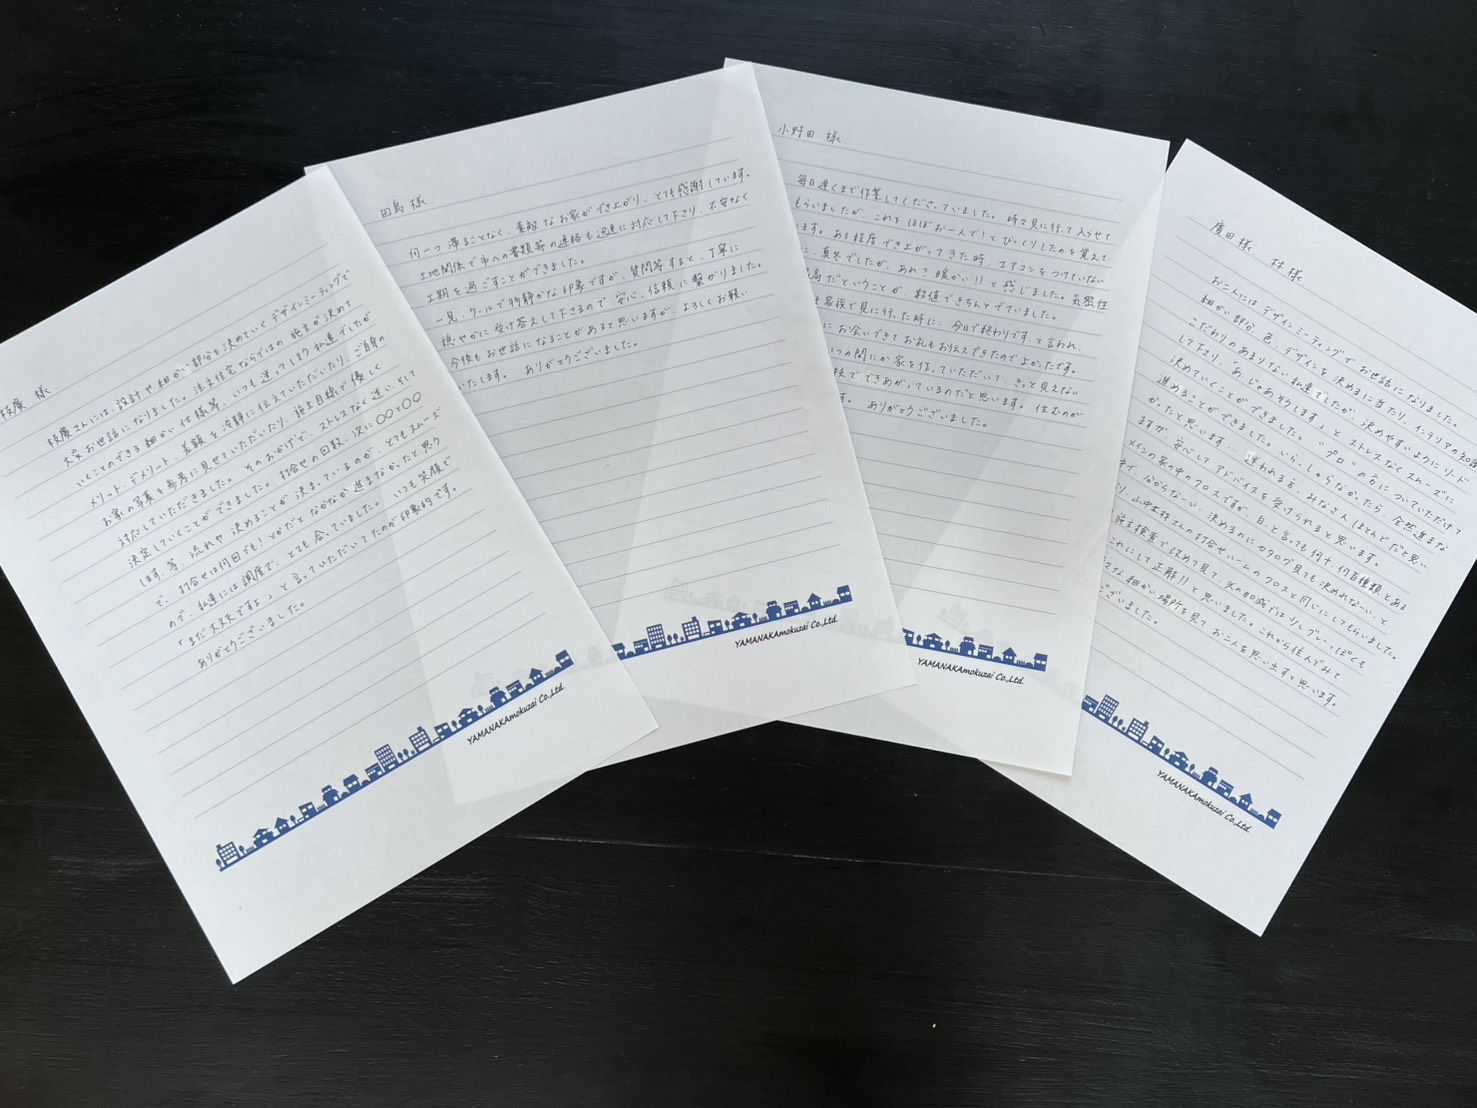 枝廣 様
枝廣さんには、設計や細かい部分を決めていくデザインミーティングで
大変お世話になりました。注文住宅ならではの施主が決めて
いくことのできる細かい仕様等、いつも迷ってしまう私達でしたが
メリット、デメリット、差額を冷静に伝えていただいたり、ご自身の
お家の写真を参考に見せていただいたり、施主目線で優しく
対応していただきました。そのおかげで、ストレスなく迷い、そして
決定していくことができました。打合せの日数、次に○○と○○
します、等、流れや決めることが決まっているのが、とてもスムーズ
で、打合せは何回でも！とかだとなかなか進まなかったと思う
ので、私達には調度で、とても合っていました。いつも笑顔で
「まだ大丈夫ですよ」と言っていただいてたのが印象的です。
ありがとうございました。
YAMANAKAmokuzai Co.,Ltd.
田島 様
何一つ滞ることなく、素敵なお家ができ上がり、とても感謝しています。
土地関係で市への書類等の連絡も迅速に対応して下さり、不安なく
工期を過ごすことができました。
一見、クールで物静かな印象ですが、質問等すると、丁寧に
穏やかに受け答えして下さるので安心、信頼に繋がりました。
今後もお世話になることがあると思いますが、よろしくお願い
いたします。 ありがとうございました。
YAMANAKAmokuzai Co.,Ltd.
小野田 様
毎日遅くまで作業してくださっていました。時々見に行って入らせて
もらいましたが、これをほぼお一人で！とびっくりしたのを覚えて
います。ある程度でき上がってきた時、エアコンをつけていない
に、真冬でしたが、あれ？暖かい!!と感じました。気密性
最高だということが数値できちんとでていました。
家族で見に行った時に、今日で終わりです、と言われ、
にお会いできてお礼もお伝えできたのでよかったです。
いつの間にか家を作っていただいて、きっと見えない
技でできあがっているのだと思います。住むのが
す。 ありがとうございました。
YAMANAKAmokuzai Co.,Ltd.
廣田様、林様
お二人にはデザインミーティングでお世話になりました。
細かい部分、色、デザインを決めるに当たり、インテリアの知識
こだわりのあまりない私達でしたが、決めやすいようにリード
して下さり、「あ、じゃあそうします」とストレスなくスムーズに
決めていくことができました。"プロ"の方についていただけて
進めることができました。いらっしゃらなかったら、全然進まな
かったと思います… 迷われる方、みなさんほとんどだと思い
ますが安心してアドバイスを受けられると思います。
メインの家の中のクロスですが、白、と言っても何十、何百種類とある
分からなーい、決めるのにカタログ見ても決めれない、と
り、山中木材さんの打合せルームのクロスと同じにしてもらいました。
施主検査で改めて見て、光の加減では少しグレーっぽくも
これにして正解!!と思いました。これから住んでみて
々な細かい場所を見てお二人を思い出すと思います。
ございました。
YAMANAKAmokuzai Co.,Ltd.